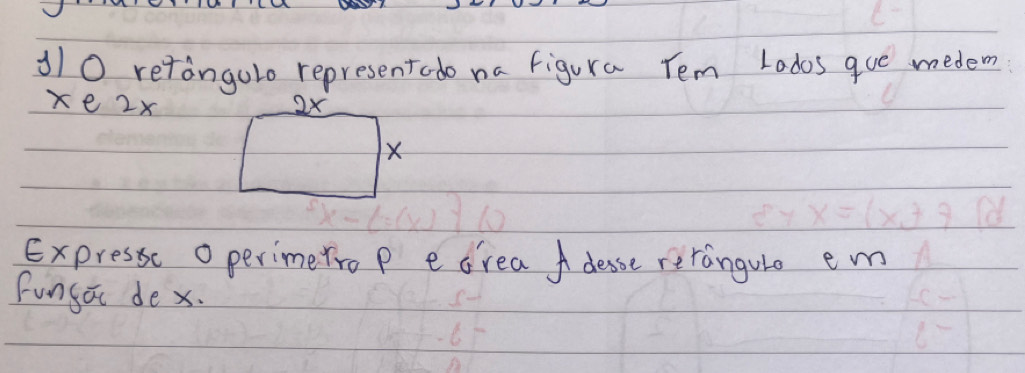 1) O retângulo representado na figura Tem Lados que medem:
x e 2x
2x
x
Expresse O perimetro P e área A desse retângulo em
função de x.